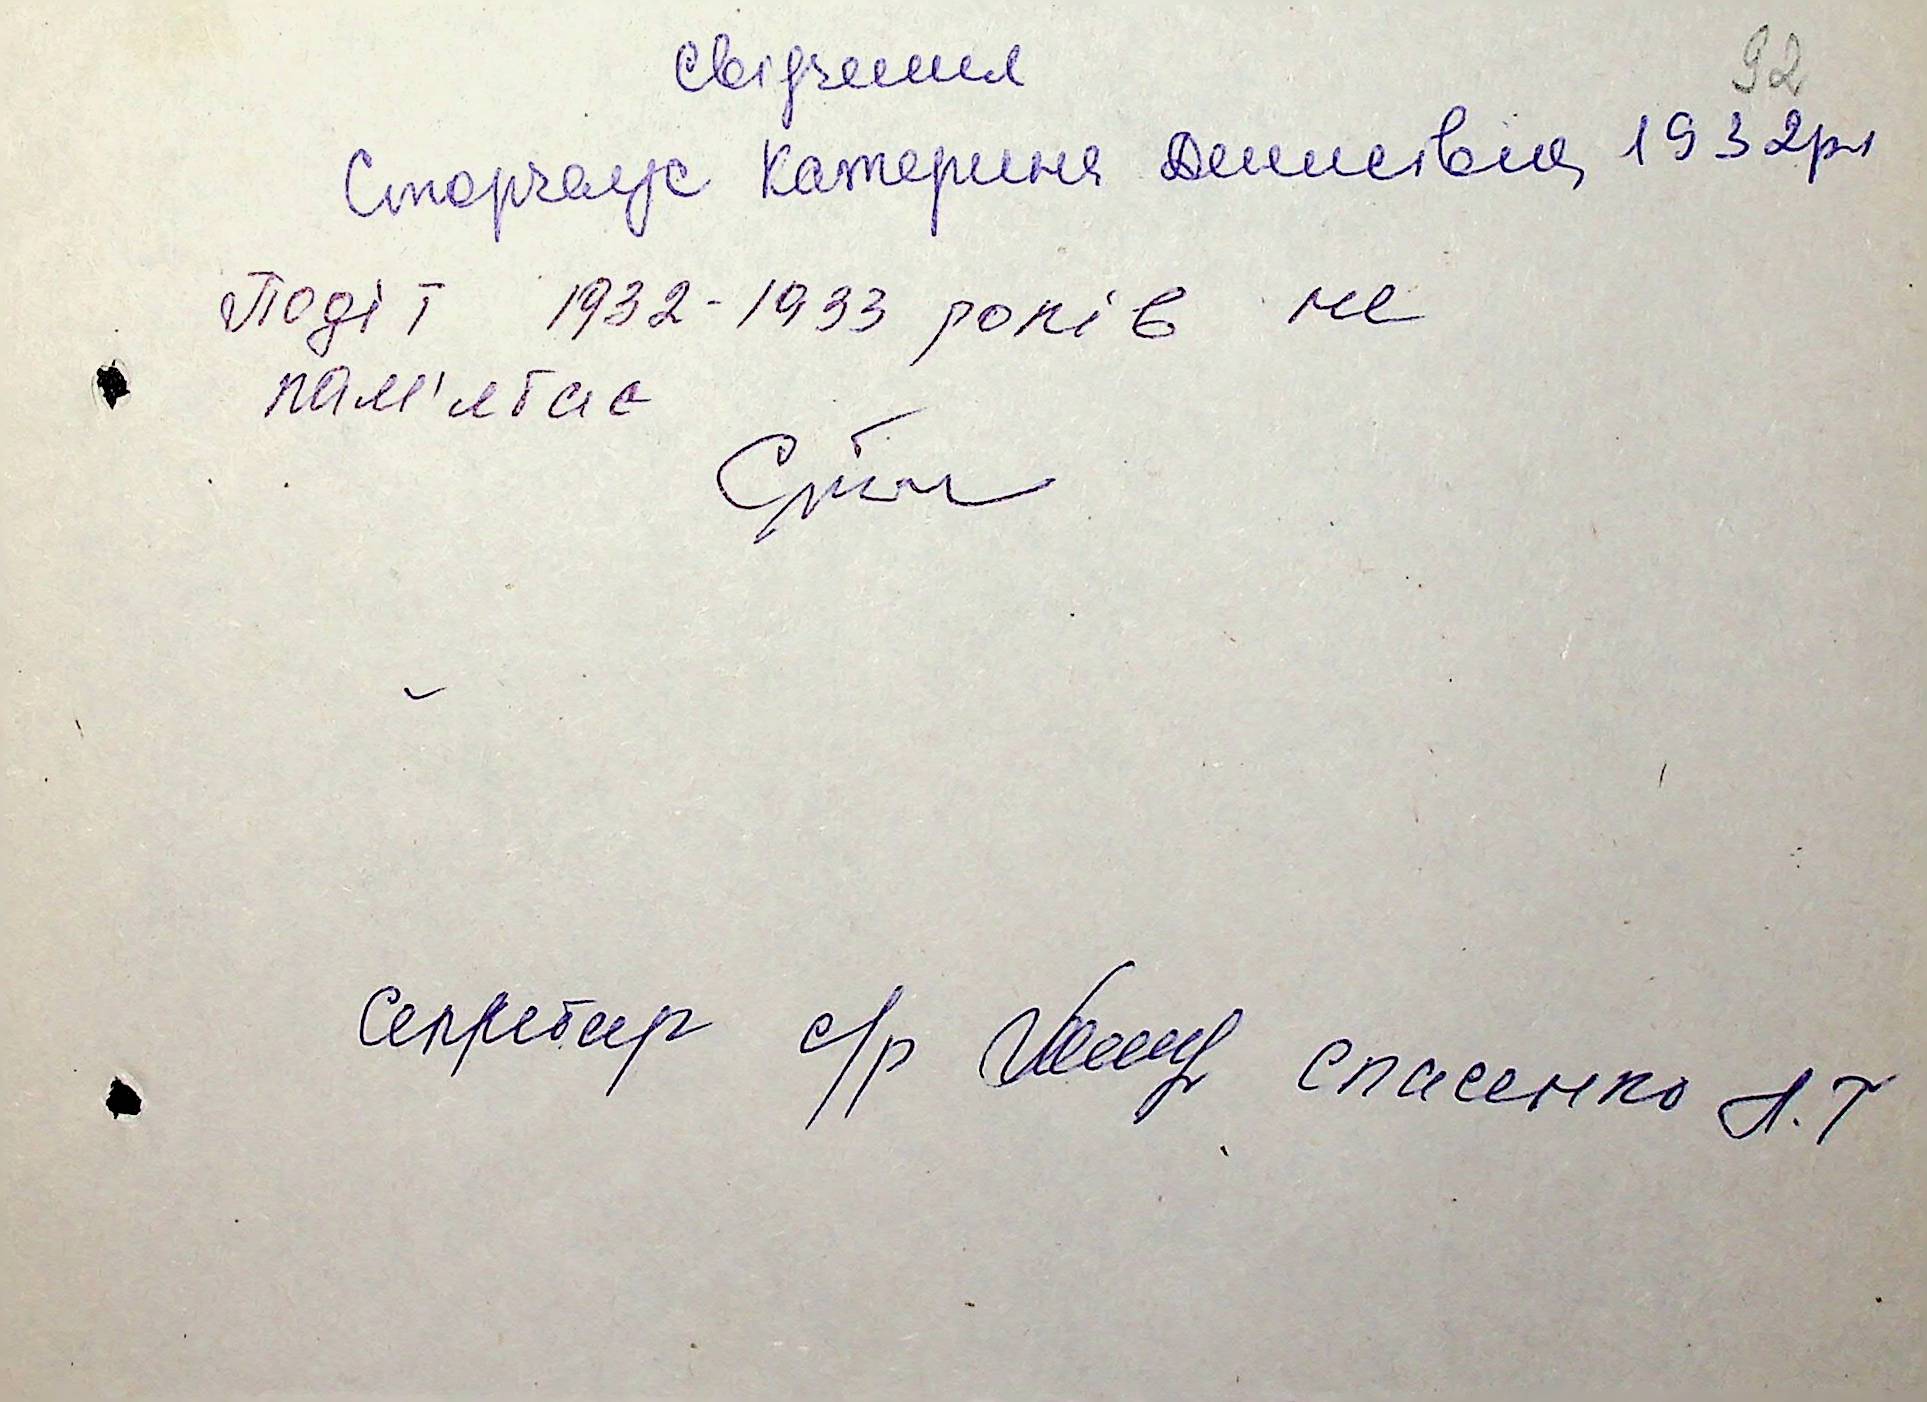 92
свідчення
Сторчаус Катерина Денисівна 1932рн
Події 1932-1933 років не
пам'ятає
Секретар с/р Спасенко Л.Т